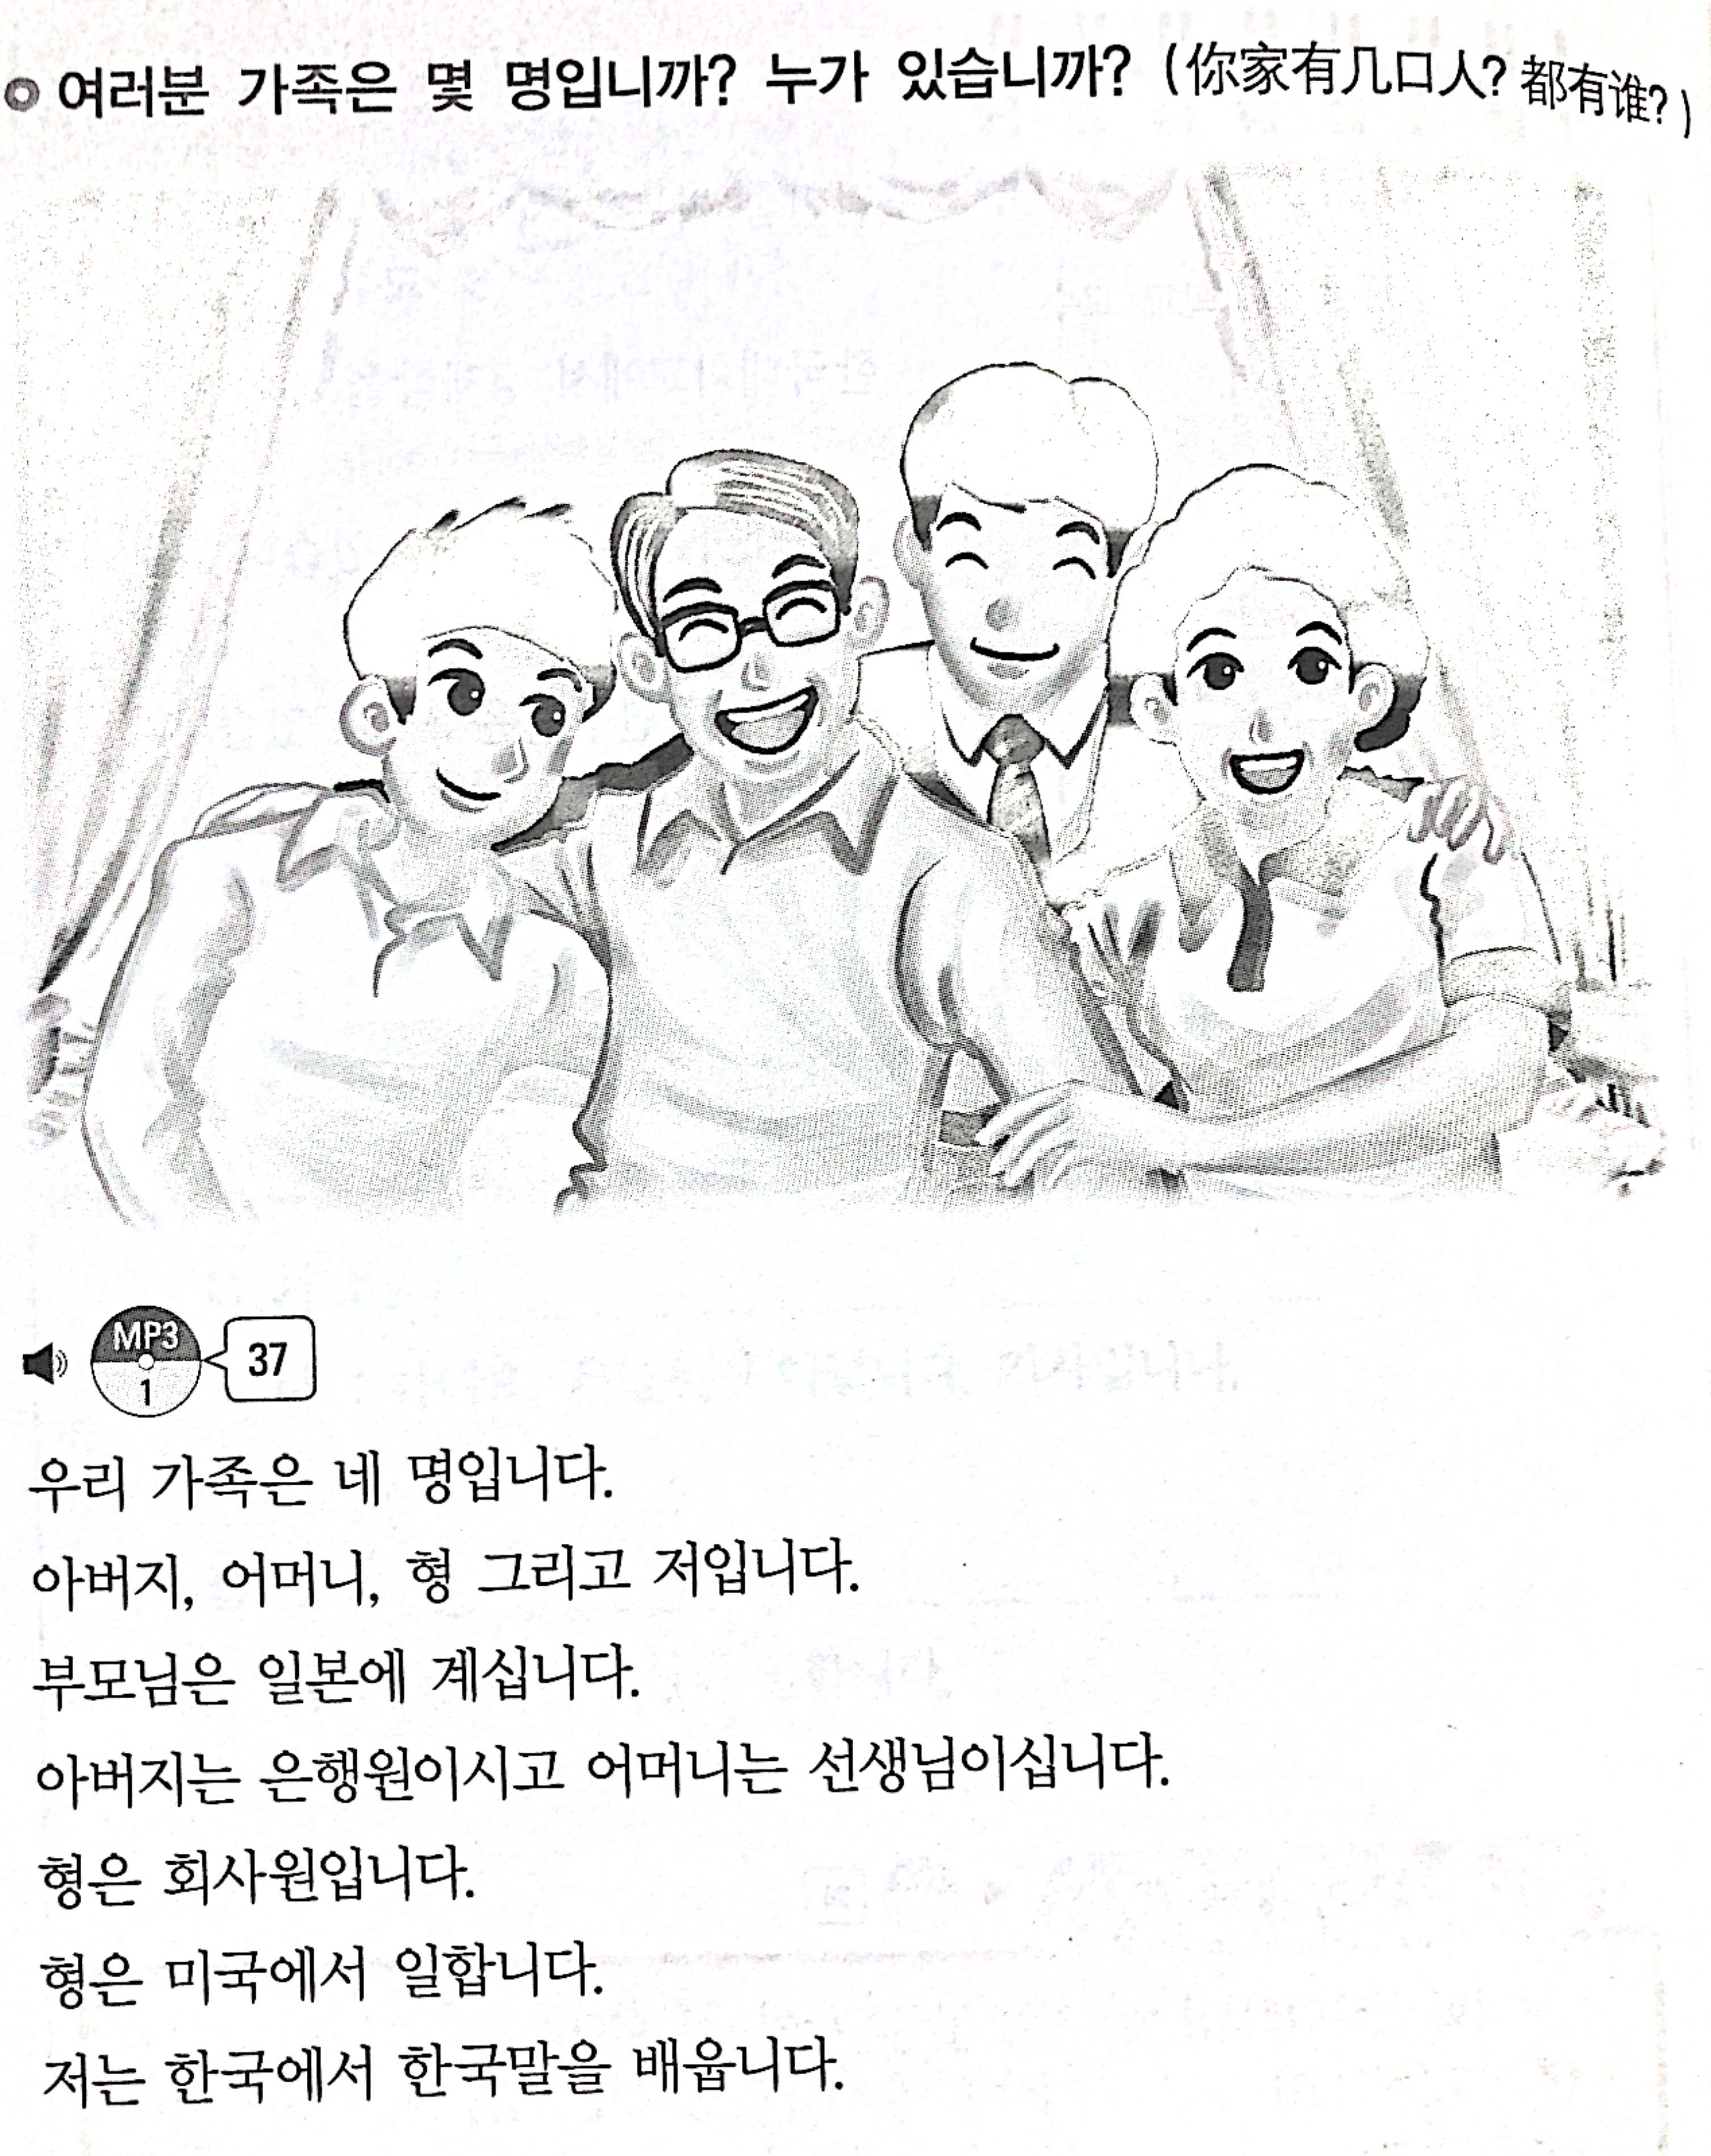 여러분 가족은 몇 명입니까? 누가 있습니까? (你家有几口人? 都有谁?)
MP3
1
37
우리 가족은 네 명입니다.
아버지, 어머니, 형 그리고 저입니다.
부모님은 일본에 계십니다.
아버지는 은행원이시고 어머니는 선생님이십니다.
형은 회사원입니다.
형은 미국에서 일합니다.
저는 한국에서 한국말을 배웁니다.